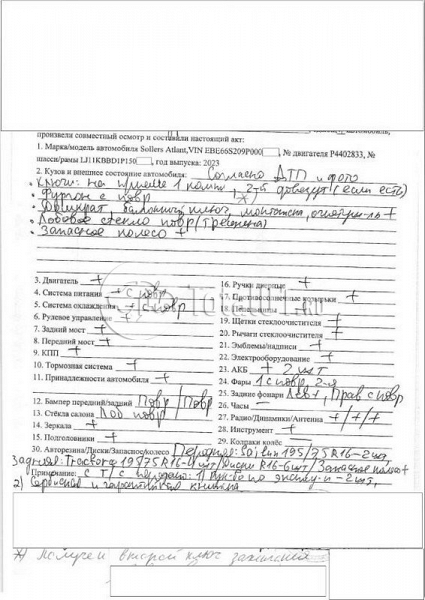 произвели совместный осмотр и составили настоящий акт:
1. Марка/модель автомобиля Sollers Atlant, VIN EBE66S209P000, № двигателя P4402833, №
шасси/рамы LJ11KBBD1P150, год выпуска: 2023
2. Кузов и внешнее состояние автомобиля: Согласно ДТП и фото
• Ключи: на приеме 1 компл, 2-й довезут (если есть)
• Фургон с повр
• Домкрат, балонный ключ, монтажка, огнетуш-ль +
• Лобовое стекло повр (трещена)
• Запасное колесо +
3. Двигатель +
4. Система питания + с повр
5. Система охлаждения с повр
6. Рулевое управление +
7. Задний мост +
8. Передний мост +
9. КПП +
10. Тормозная система +
11. Принадлежности автомобиля +
12. Бампер передний/задний Повр / Повр
13. Стёкла салона Лоб повр
14. Зеркала +
15. Подголовники +
16. Ручки дверные +
17. Противосолнечные козырьки +
18. Пепельницы
19. Щетки стеклоочистителя +
20. Рычаги стеклоочистителя +
21. Эмблемы/надписи +
22. Электрооборудование +
23. АКБ + 2 шт
24. Фары 1 с повр, 2-я
25. Задние фонари Лев +, Прав с повр
26. Часы —
27. Радио/Динамики/Антенна + / + / +
28. Инструмент +
29. Колпаки колёс —
30. Авторезина/Диски/Запасное/колесо Передняя: 195/75 R16-2шт,
Задняя: 195/75 R16-4шт/Диски R16-6шт/Запасное колесо+
Примечание: с Т/С передано: 1) Рук-во по эксплу-и - 2шт,
2) Сервисная и гарантийная книжка
*) Получен второй ключ